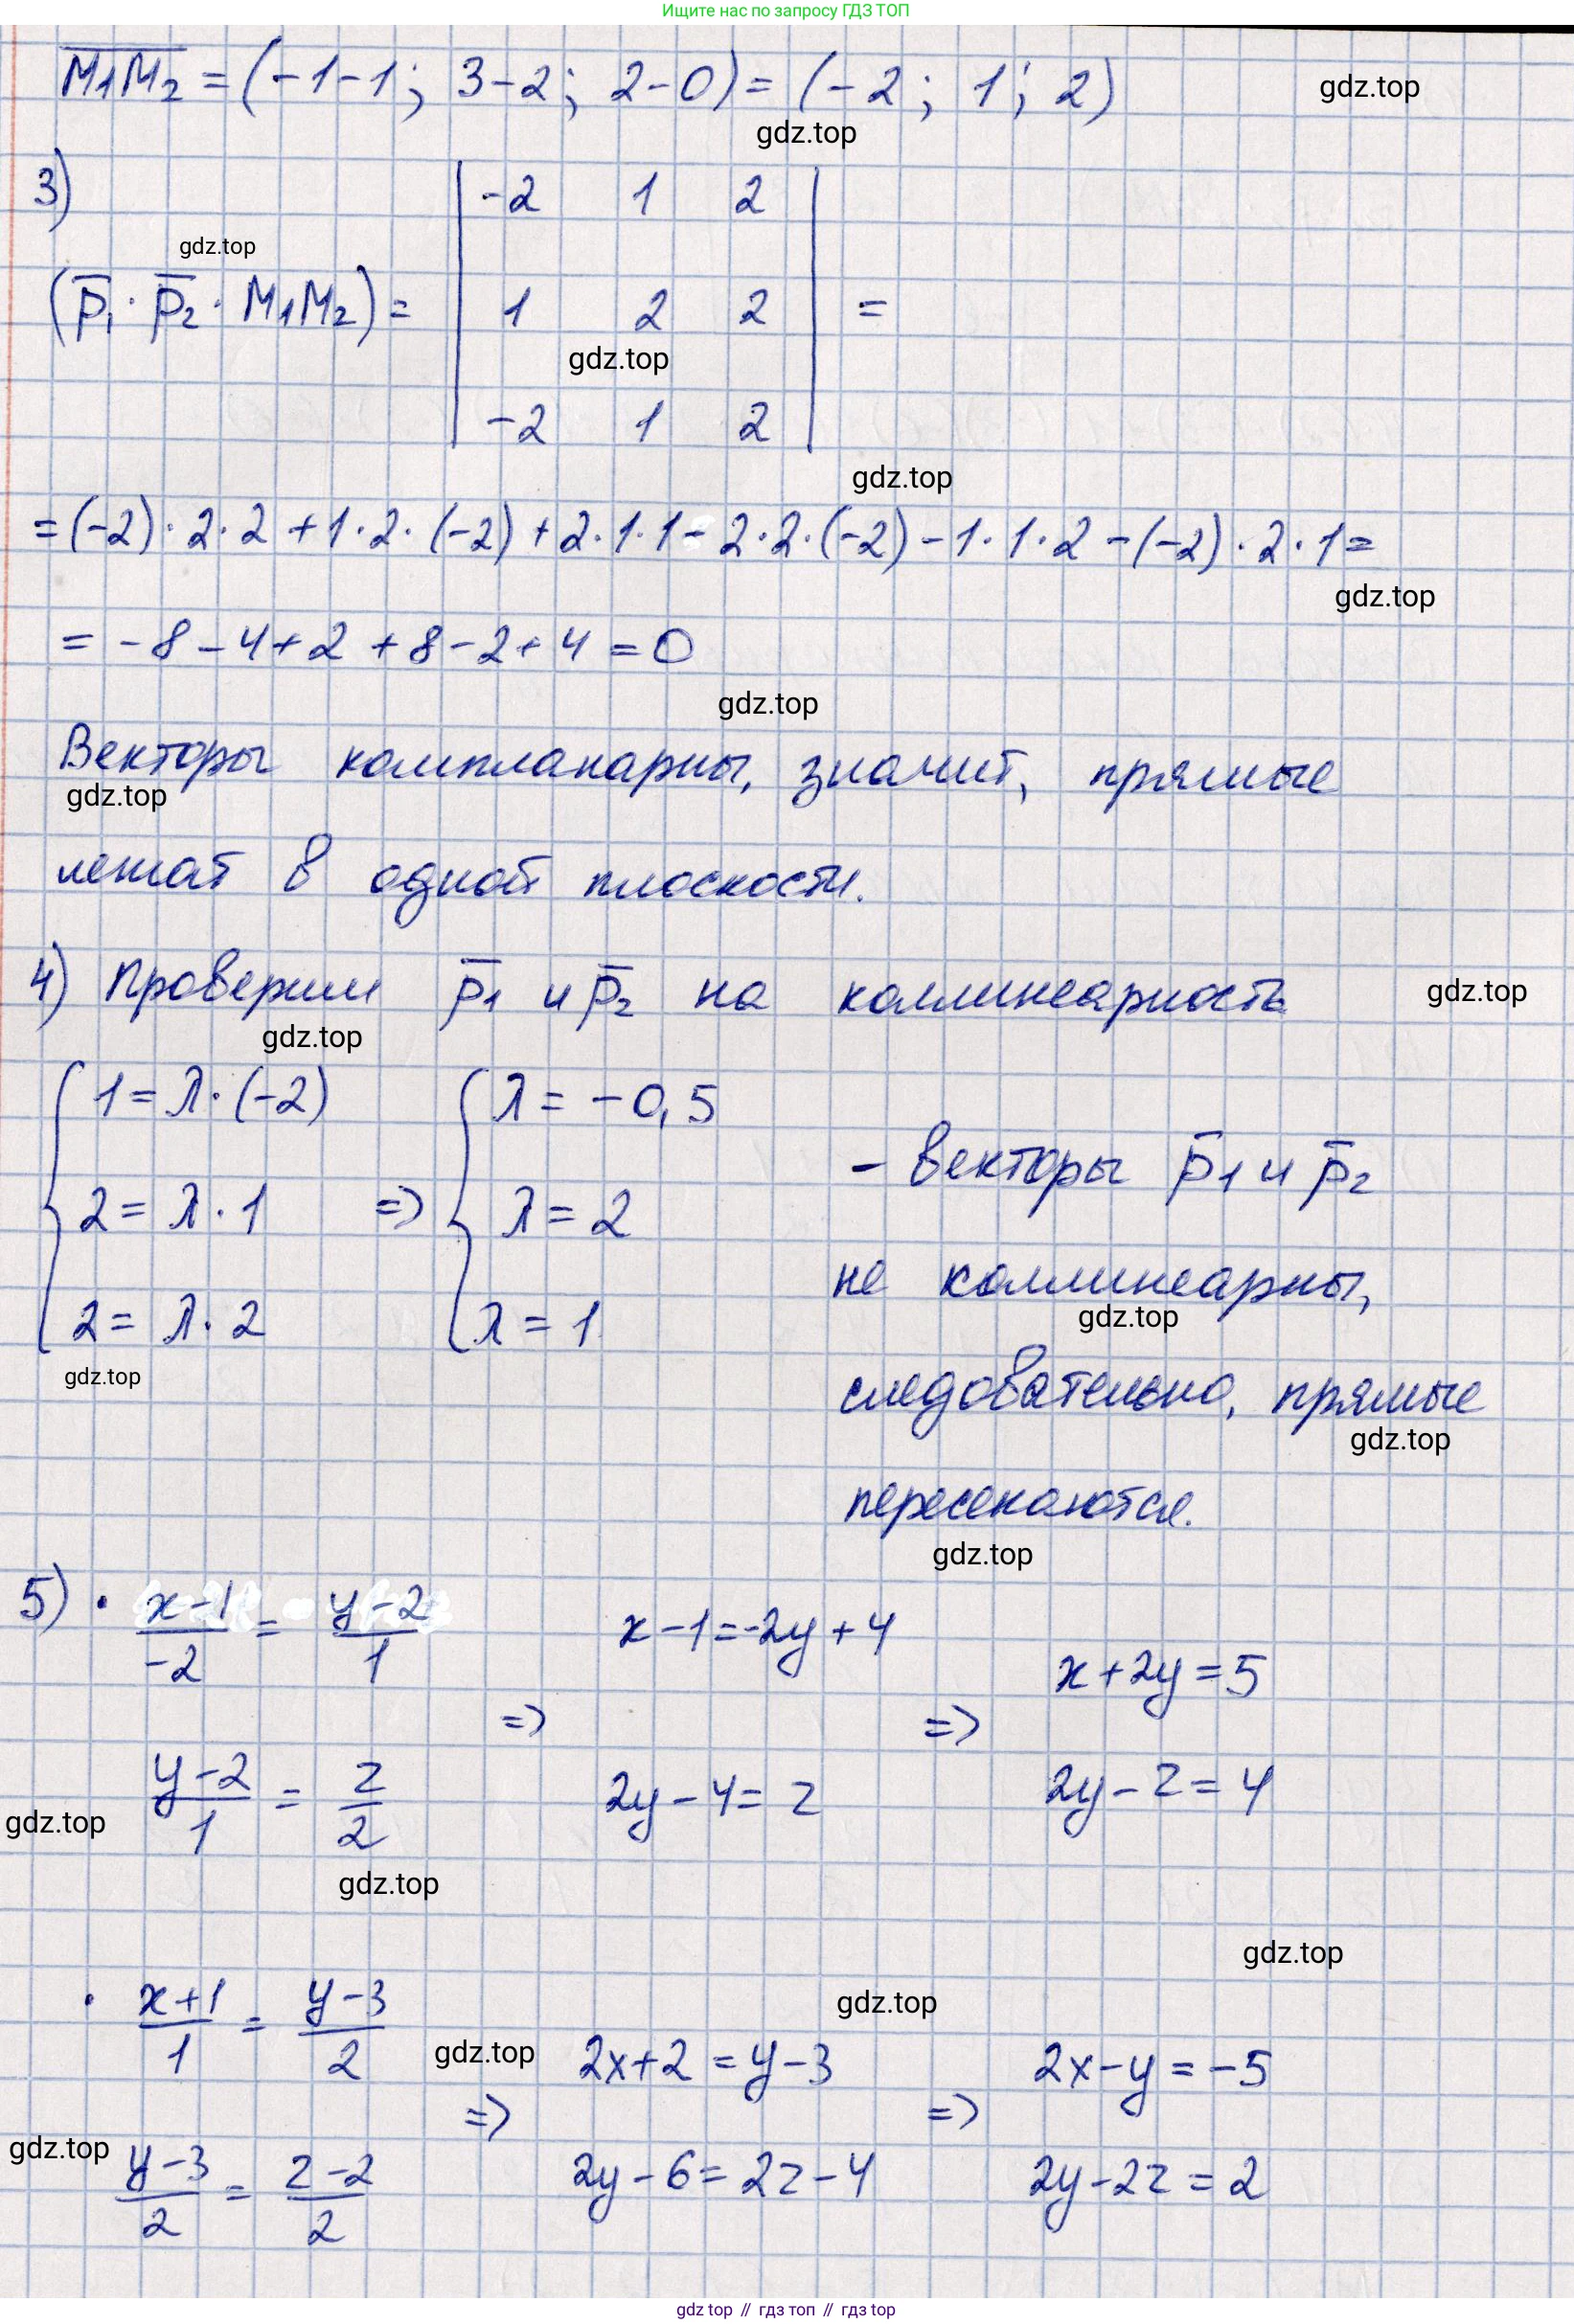 Ищите нас по запросу ГДЗ ТОП
M₁M₂ = (-1-1; 3-2; 2-0) = (-2; 1; 2)
gdz.top
gdz.top
3)
gdz.top
(p̅₁ · p̅₂ · M₁M₂) = | -2 1 2 |
| 1 2 2 | =
gdz.top
| -2 1 2 |
gdz.top
= (-2) · 2 · 2 + 1 · 2 · (-2) + 2 · 1 · 1 - 2 · 2 · (-2) - 1 · 1 · 2 - (-2) · 2 · 1 =
gdz.top
= -8 - 4 + 2 + 8 - 2 + 4 = 0
gdz.top
Векторы компланарны, значит, прямые
gdz.top
лежат в одной плоскости.
4) Проверим p̅₁ и p̅₂ на коллинеарность
gdz.top
gdz.top
{ 1 = λ · (-2)
2 = λ · 1
2 = λ · 2
=> { λ = -0,5
λ = 2
λ = 1
- векторы p̅₁ и p̅₂
не коллинеарны,
gdz.top
следовательно, прямые
gdz.top
gdz.top
пересекаются.
gdz.top
5) · x-1/-2 = y-2/1
y-2/1 = z/2
=> x-1 = -2y+4
2y-4 = z
=> x+2y = 5
2y-z = 4
gdz.top
gdz.top
gdz.top
gdz.top
· x+1/1 = y-3/2
gdz.top
y-3/2 = z-2/2
gdz.top
=> 2x+2 = y-3
2y-6 = 2z-4
=> 2x-y = -5
2y-2z = 2
gdz top // гдз топ // гдз top